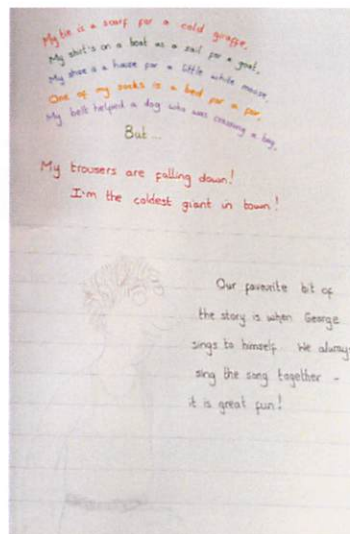 My tie is a scarf for a cold giraffe,
My shirt's on a boat as a sail for a goat,
My shoe is a house for a little white mouse,
One of my socks is a bed for a fox,
My belt helped a dog who was crossing a bog,
But...
My trousers are falling down!
I'm the coldest giant in town!
Our favourite bit of
the story is when George
sings to himself. We always
sing the song together -
it is great fun!